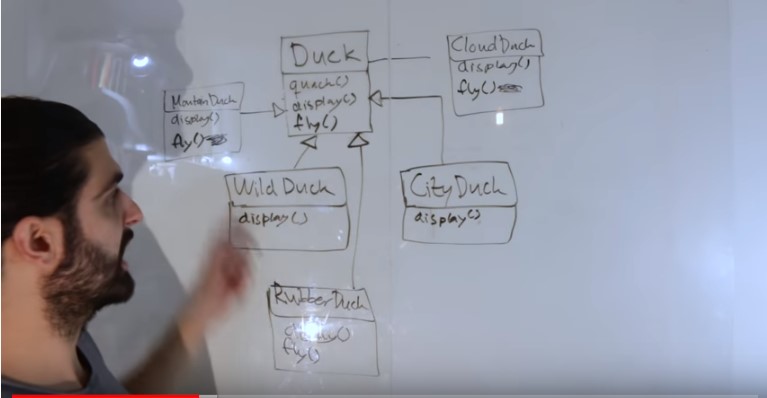 Duck
quack()
display()
fly()
CloudDuck
display()
fly()
display()
fly()
Wild Duck
display()
City Duck
display()
Rubber Duck
fly()